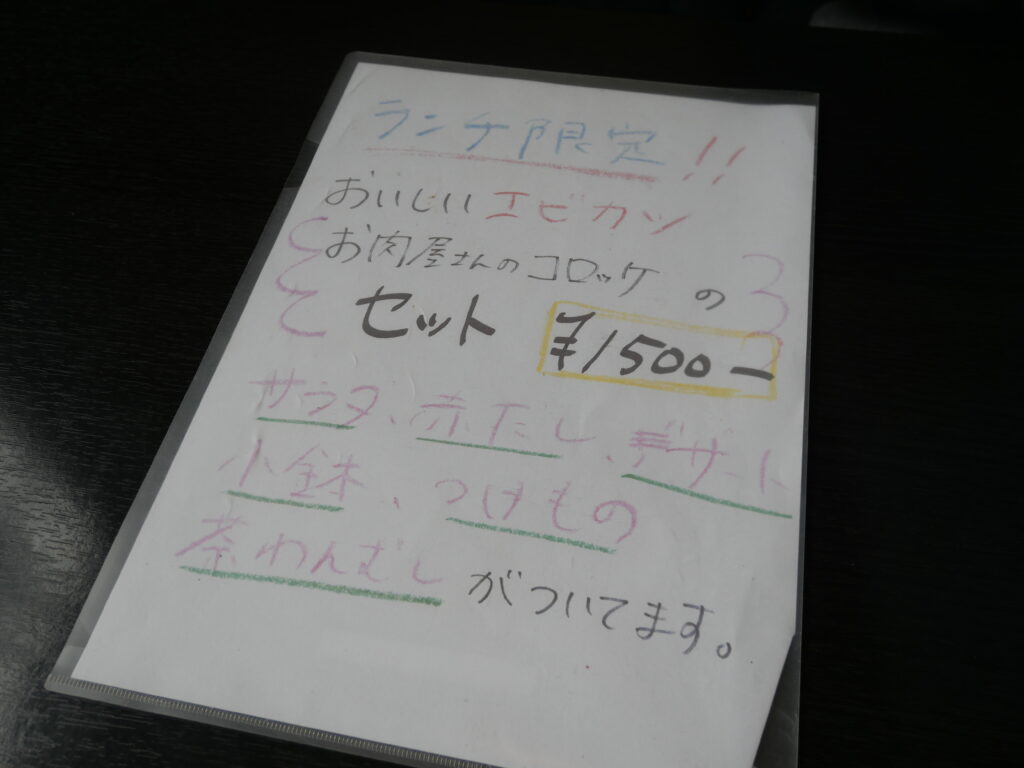 ランチ限定!!
おいしいエビカツ
お肉屋さんのコロッケ の
セット ¥1500ー
サラダ、赤だし、デザート
小鉢、つけもの
茶わんむし がついてます。